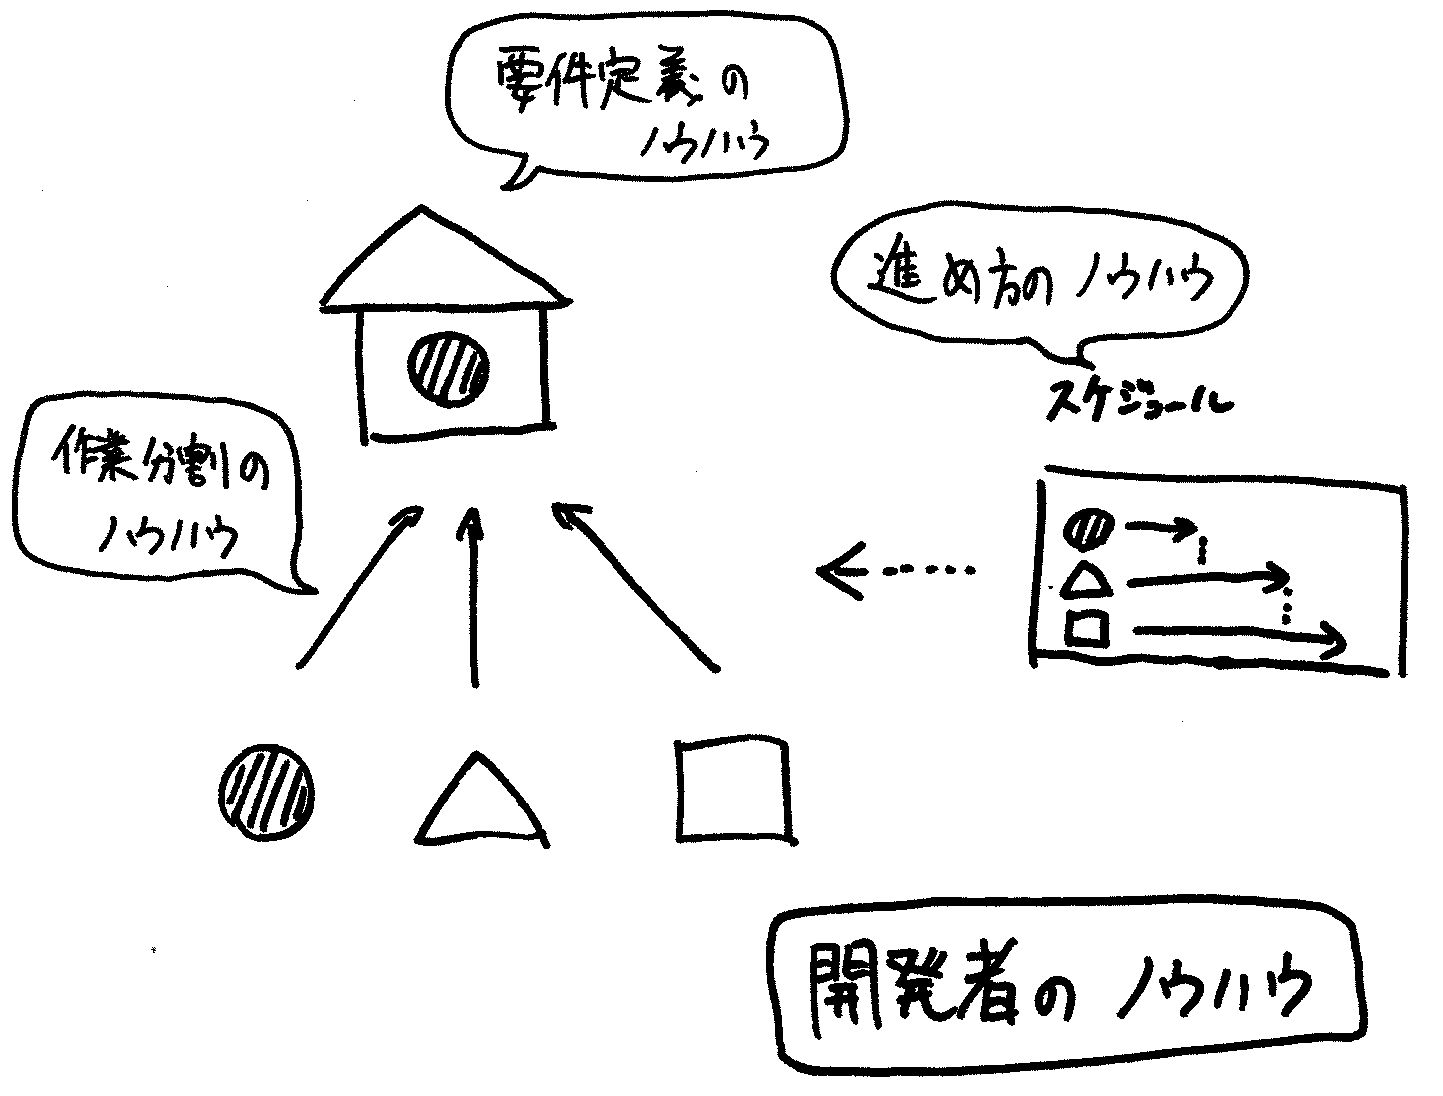 要件定義の
ノウハウ
進め方のノウハウ
スケジュール
作業分割の
ノウハウ
開発者のノウハウ